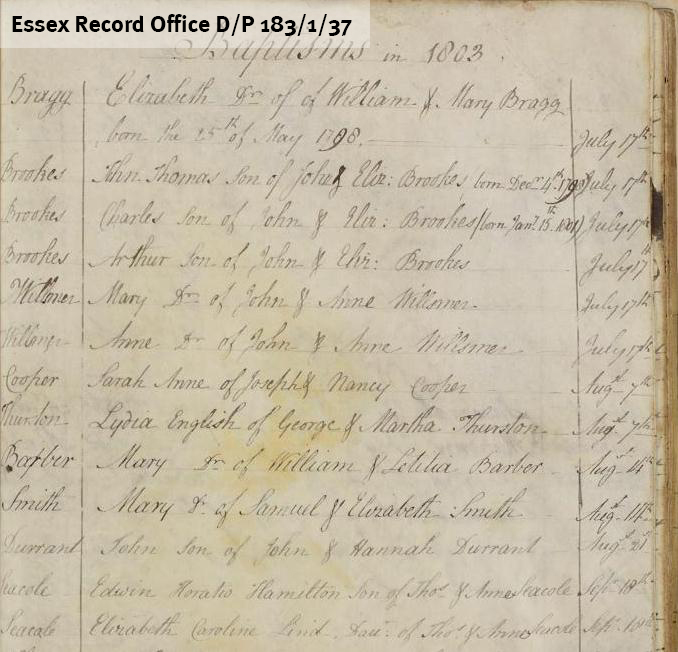 Essex Record Office D/P 183/1/37
Baptisms in 1803.
Bragg Elizabeth Dr of of William & Mary Bragg
born the 25th of May 1798. July 17th
Brookes John Thomas Son of John & Eliz: Brookes born Decr 4th 1798 July 17th
Brookes Charles Son of John & Eliz: Brookes (born Jany. 15th 1801) July 17th
Brookes Arthur Son of John & Eliz: Brookes July 17th
Mary Dr of John & Anne Willsmer July 17th
Anne Dr of John & Anne Willsmer July 17th
Cooper Sarah Anne of Joseph & Nancy Cooper Augst 7th
Thurston Lydia English of George & Martha Thurston Augst 7th
Barber Mary Dr of William & Letitia Barber Augst 14th
Smith Mary Dr. of Samuel & Elizabeth Smith Augst 14th
Durrant John Son of John & Hannah Durrant Augst 21st
Seacole Edwin Horatio Hamilton Son of Thos & Anne Seacole Sepr 18th
Seacole Elizabeth Caroline Lind Daur. of Thos & Anne Seacole Sepr.